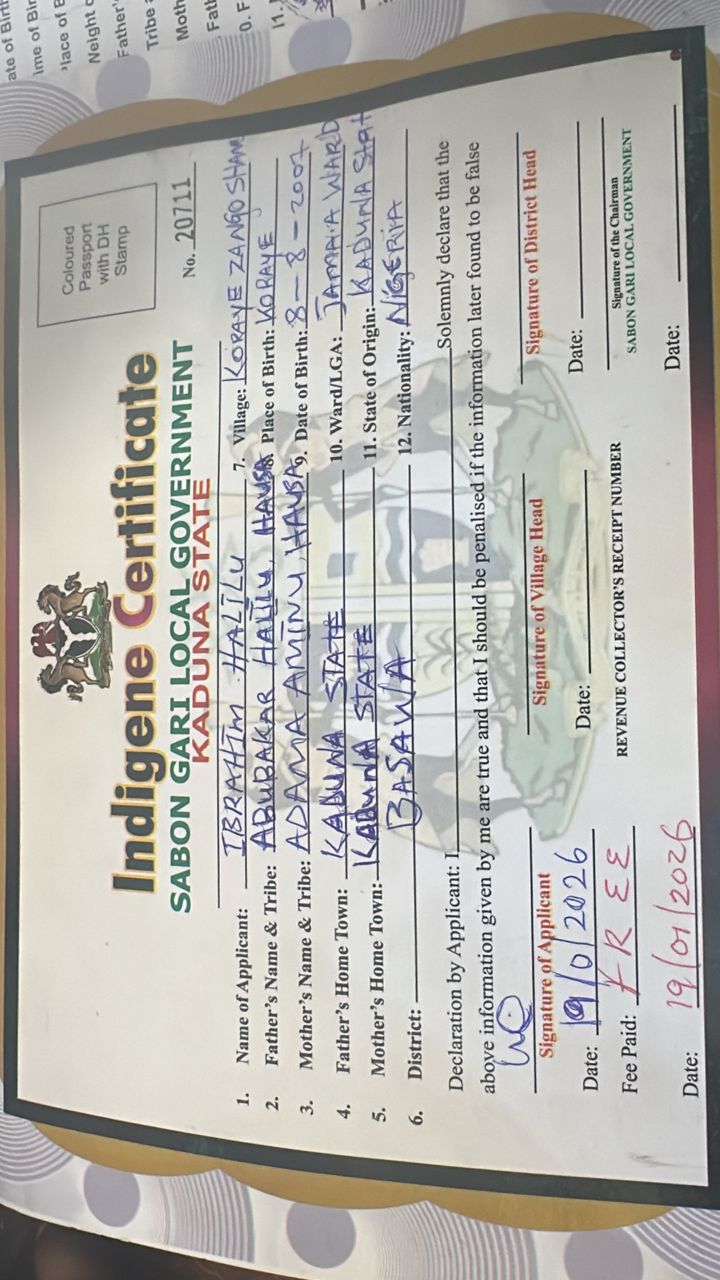 Coloured
Passport
with DH
Stamp
Indigene Certificate
SABON GARI LOCAL GOVERNMENT
KADUNA STATE
No. 20711
1. Name of Applicant: IBRAHIM HALILU
2. Father's Name & Tribe: ABUBAKAR HALILU, HAUSA
3. Mother's Name & Tribe: ADAMA AMINU, HAUSA
4. Father's Home Town: KADUNA STATE
5. Mother's Home Town: KADUNA STATE
6. District: BASAWA
7. Village: KORAYE ZANGO SHANU
8. Place of Birth: KORAYE
9. Date of Birth: 8-8-2007
10. Ward/LGA: JAMA'A WARD
11. State of Origin: KADUNA Stat
12. Nationality: NIGERIA
Declaration by Applicant: I Solemnly declare that the
above information given by me are true and that I should be penalised if the information later found to be false
Signature of Applicant
Signature of Village Head
Signature of District Head
Date: 19/0/2026
Date:
Date:
Fee Paid: FREE
REVENUE COLLECTOR'S RECEIPT NUMBER
Signature of the Chairman
SABON GARI LOCAL GOVERNMENT
Date: 19/01/2026
Date:
ate of Birth
ime of Bir
lace of B
Neight o
Father'
Tribe
Moth
Fat
0. F
11.